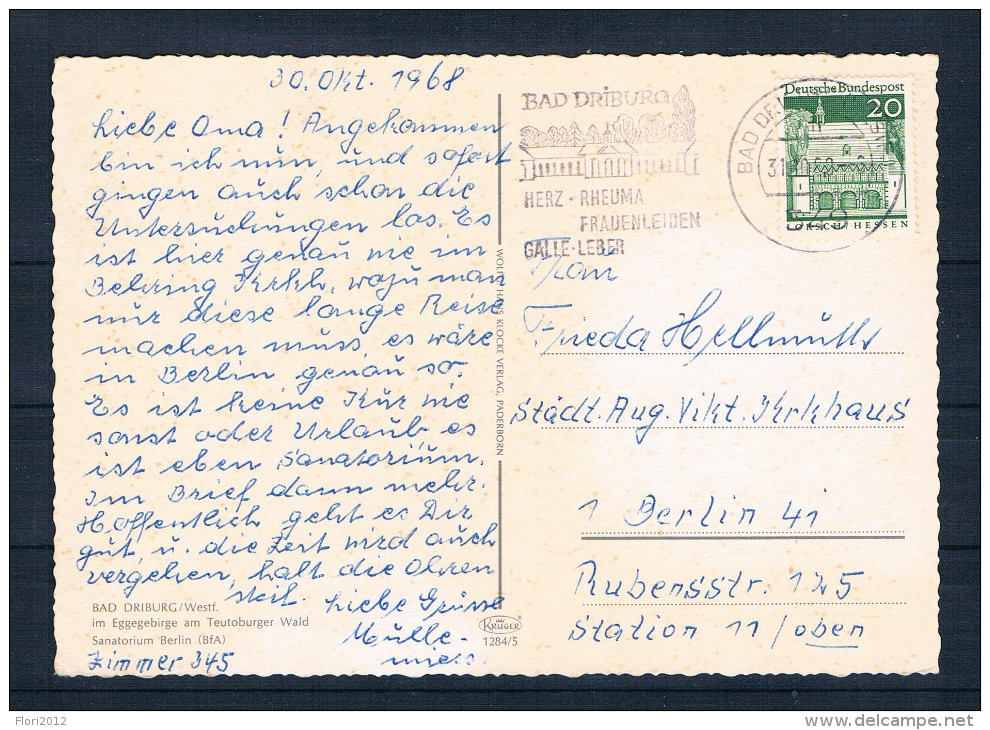 30. Okt. 1968
Liebe Oma! Angekommen
bin ich nun, und sofort
gingen auch schon die
Untersuchungen los. Es
ist hier genau wie im
Behring Krkh, wozu man
nur diese lange Reise
machen muss, es wäre
in Berlin genau so.
Es ist keine Kur wie
sonst oder Urlaub, es
ist eben Sanatorium.
Im Brief dann mehr.
Hoffentlich geht es Dir
gut, u. die Zeit wird auch
vergehen, halt die Ohren
steif. Liebe Grüsse
BAD DRIBURG/Westf.
im Eggegebirge am Teutoburger Wald
Sanatorium Berlin (BfA)
Zimmer 345
WOLFG. HANS KLOCKE VERLAG, PADERBORN
KRÜGER
1284/5
BAD DRIBURG
HERZ - RHEUMA
FRAUENLEIDEN
GALLE - LEBER
BAD DRIBURG
Deutsche Bundespost
20
LORSCH/HESSEN
Frau
Frieda Hellmuth
Städt. Aug. Vikt. Krkhaus
1 Berlin 41
Rubensstr. 125
Station 11/oben
Flori2012
www.delcampe.net